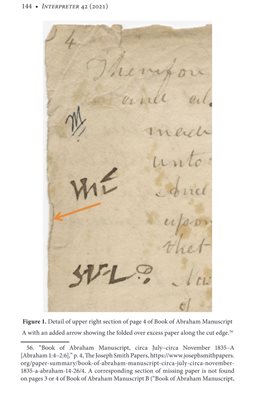 144 • Interpreter 42 (2021)
4
Therefore
and al
made
unto
upon
that
of
Figure 1. Detail of upper right section of page 4 of Book of Abraham Manuscript
A with an added arrow showing the folded over excess paper along the cut edge.56
56. "Book of Abraham Manuscript, circa July–circa November 1835–A
[Abraham 1:4–2:6]," p. 4, The Joseph Smith Papers, https://www.josephsmithpapers.
org/paper-summary/book-of-abraham-manuscript-circa-july-circa-november-
1835-a-abraham-14-26/4. A corresponding section of missing paper is not found
on pages 3 or 4 of Book of Abraham Manuscript B ("Book of Abraham Manuscript,